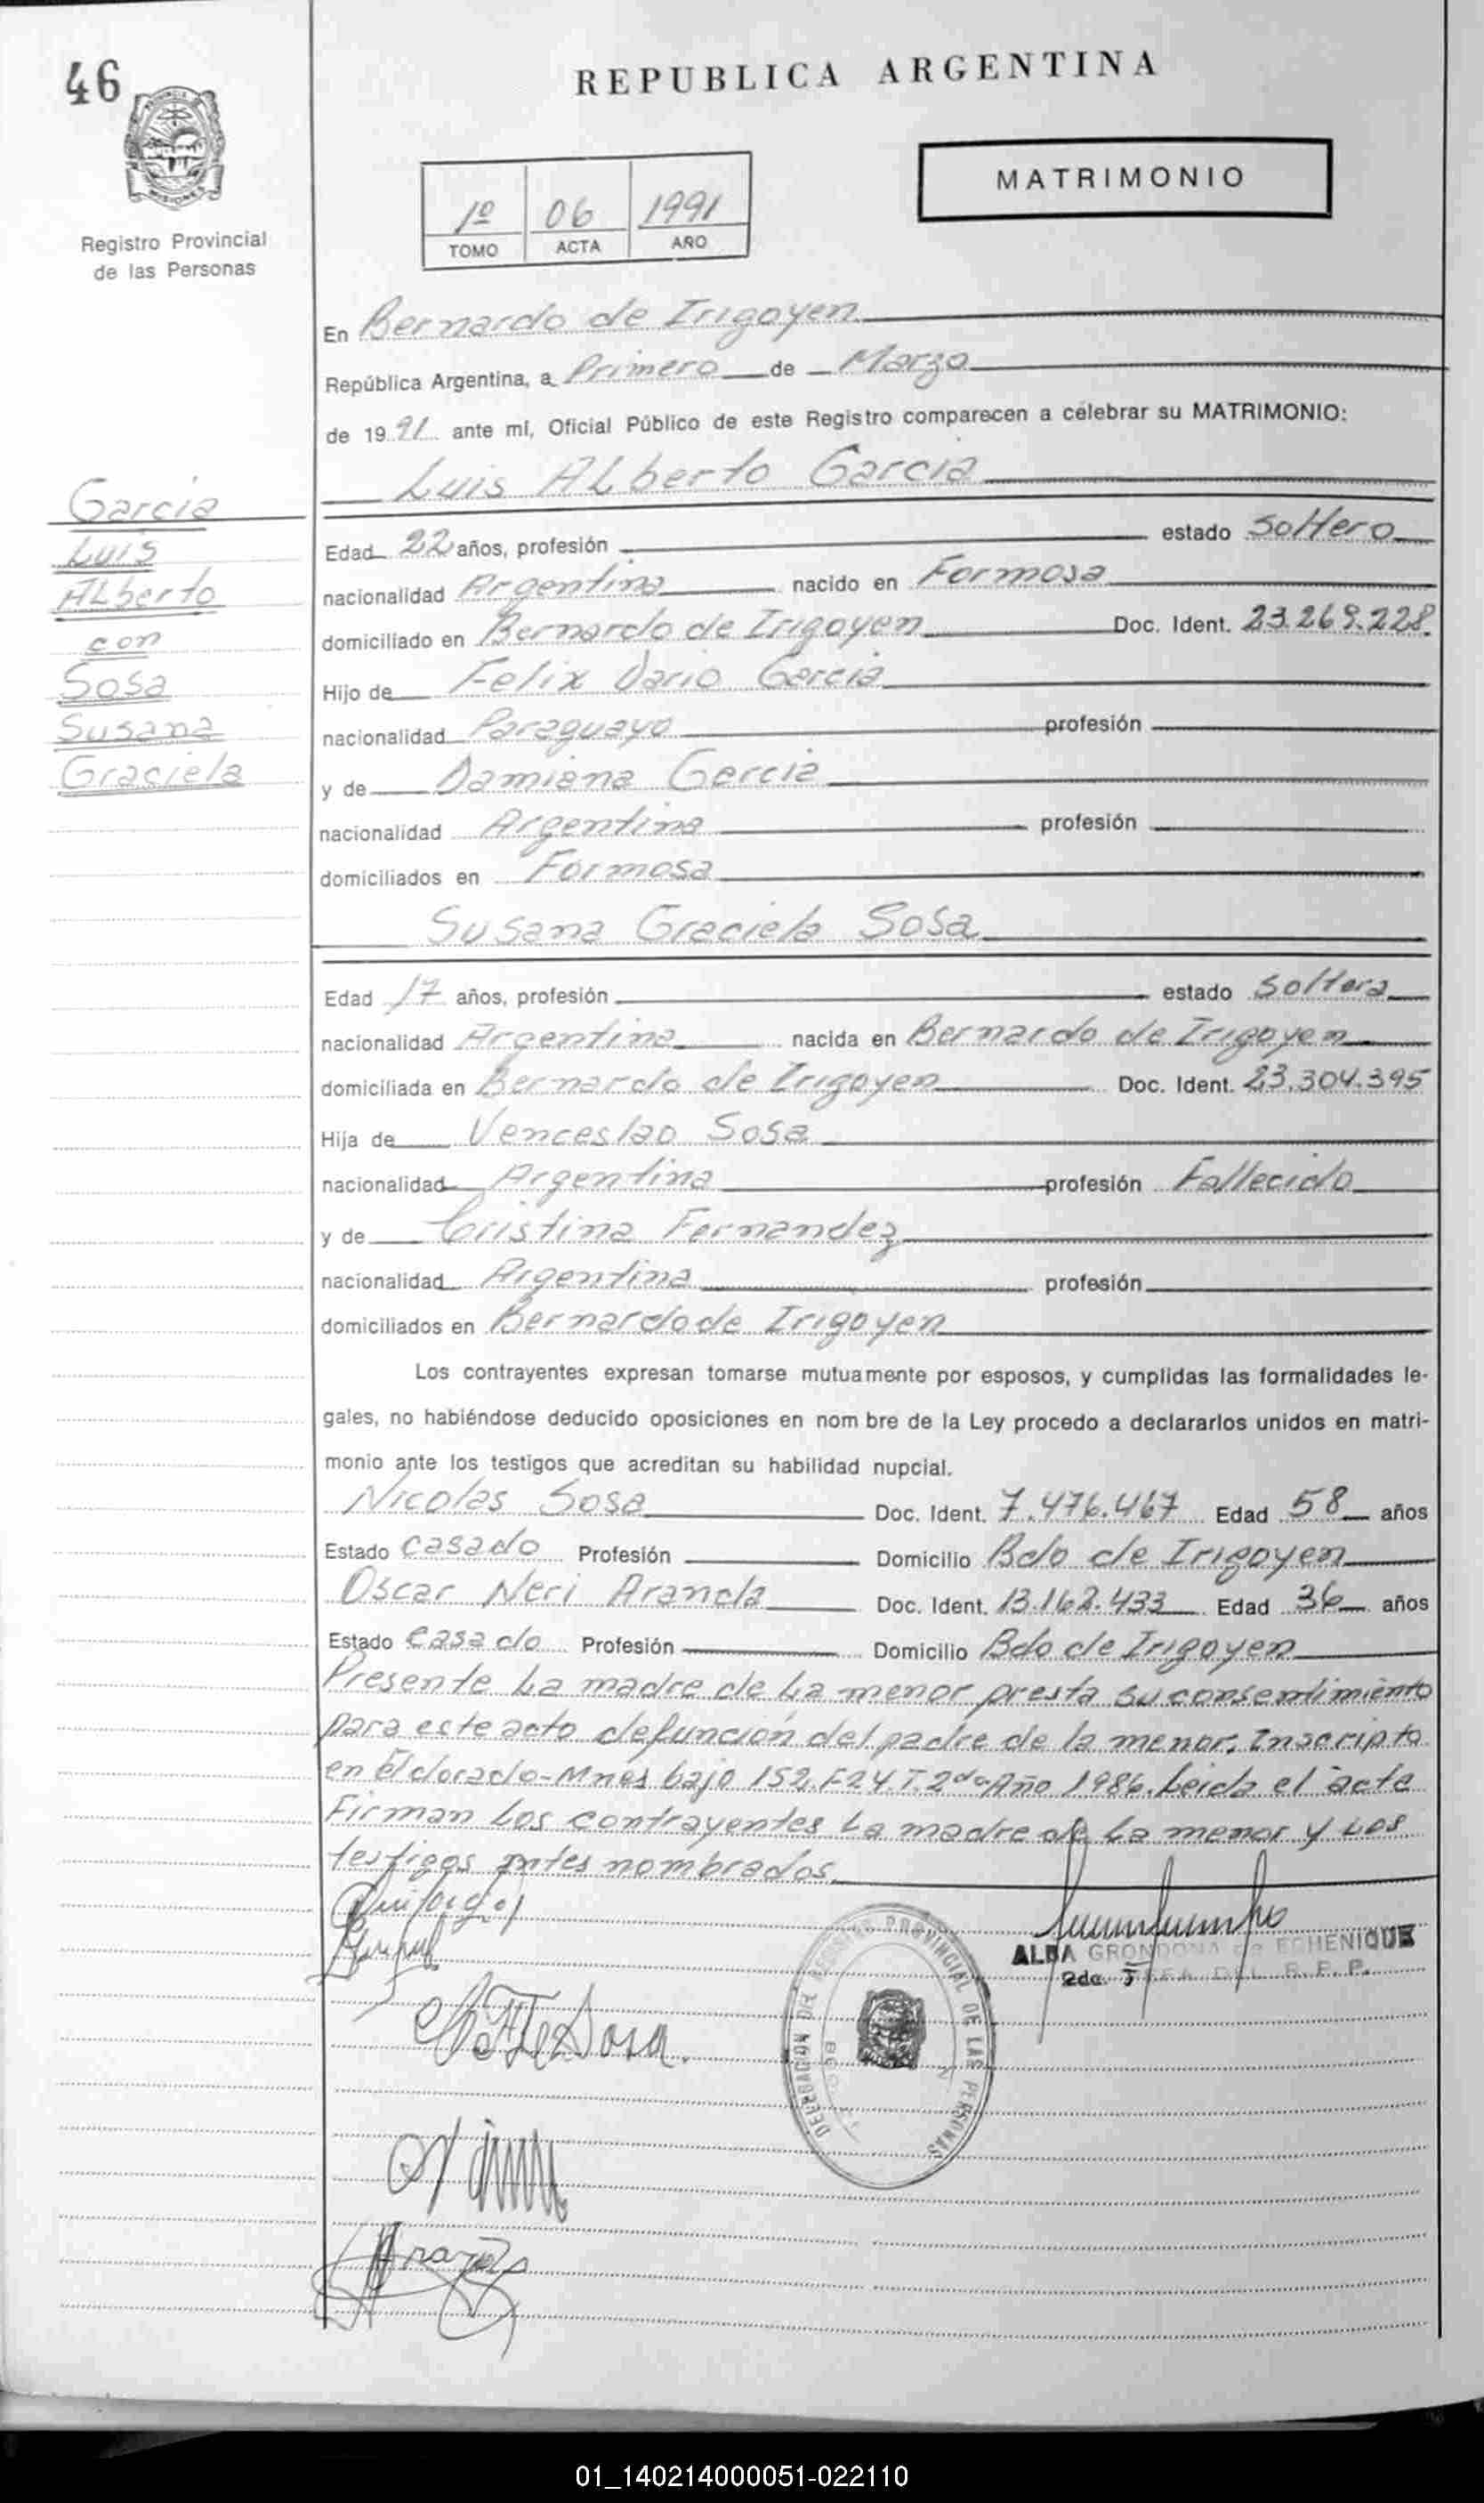 46
REPUBLICA ARGENTINA
MATRIMONIO
1º 06 1991
TOMO ACTA AÑO
Registro Provincial
de las Personas
En Bernardo de Irigoyen
República Argentina, a Primero de Marzo
de 1991 ante mí, Oficial Público de este Registro comparecen a celebrar su MATRIMONIO:
Luis ALberto Garcia
Garcia
Luis
ALberto
con
Sosa
Susana
Graciela
Edad 22 años, profesión estado Soltero
nacionalidad Argentina nacido en Formosa
domiciliado en Bernardo de Irigoyen Doc. Ident. 23.269.228
Hijo de Felix Dario Garcia
nacionalidad Paraguayo profesión
y de Damiana Garcia
nacionalidad Argentina profesión
domiciliados en Formosa
Susana Graciela Sosa
Edad 17 años, profesión estado Soltera
nacionalidad Argentina nacida en Bernardo de Irigoyen
domiciliada en Bernardo de Irigoyen Doc. Ident. 23.304.395
Hija de Venceslao Sosa
nacionalidad Argentina profesión Fallecido
y de Cristina Fernandez
nacionalidad Argentina profesión
domiciliados en Bernardo de Irigoyen
Los contrayentes expresan tomarse mutuamente por esposos, y cumplidas las formalidades le-
gales, no habiéndose deducido oposiciones en nom bre de la Ley procedo a declararlos unidos en matri-
monio ante los testigos que acreditan su habilidad nupcial.
Nicolas Sosa Doc. Ident. 7.476.467 Edad 58 años
Estado Casado Profesión Domicilio Bdo de Irigoyen
Oscar Neri Aranda Doc. Ident. 13.162.433 Edad 36 años
Estado Casado Profesión Domicilio Bdo de Irigoyen
Presente La madre de La menor presta su consentimiento
para este acto defunción del padre de la menor, Inscripto
en Eldorado-Mnes bajo 152.F-24.T.2do Año 1986. Leida el acta
Firman Los contrayentes La madre de La menor y Los
testigos antes nombrados.
ALBA GRONDONA de ECHENIQUE
2da. JEFA DEL R.P.P.
DELEGACION DEL REGISTRO PROVINCIAL DE LAS PERSONAS
01_140214000051-022110